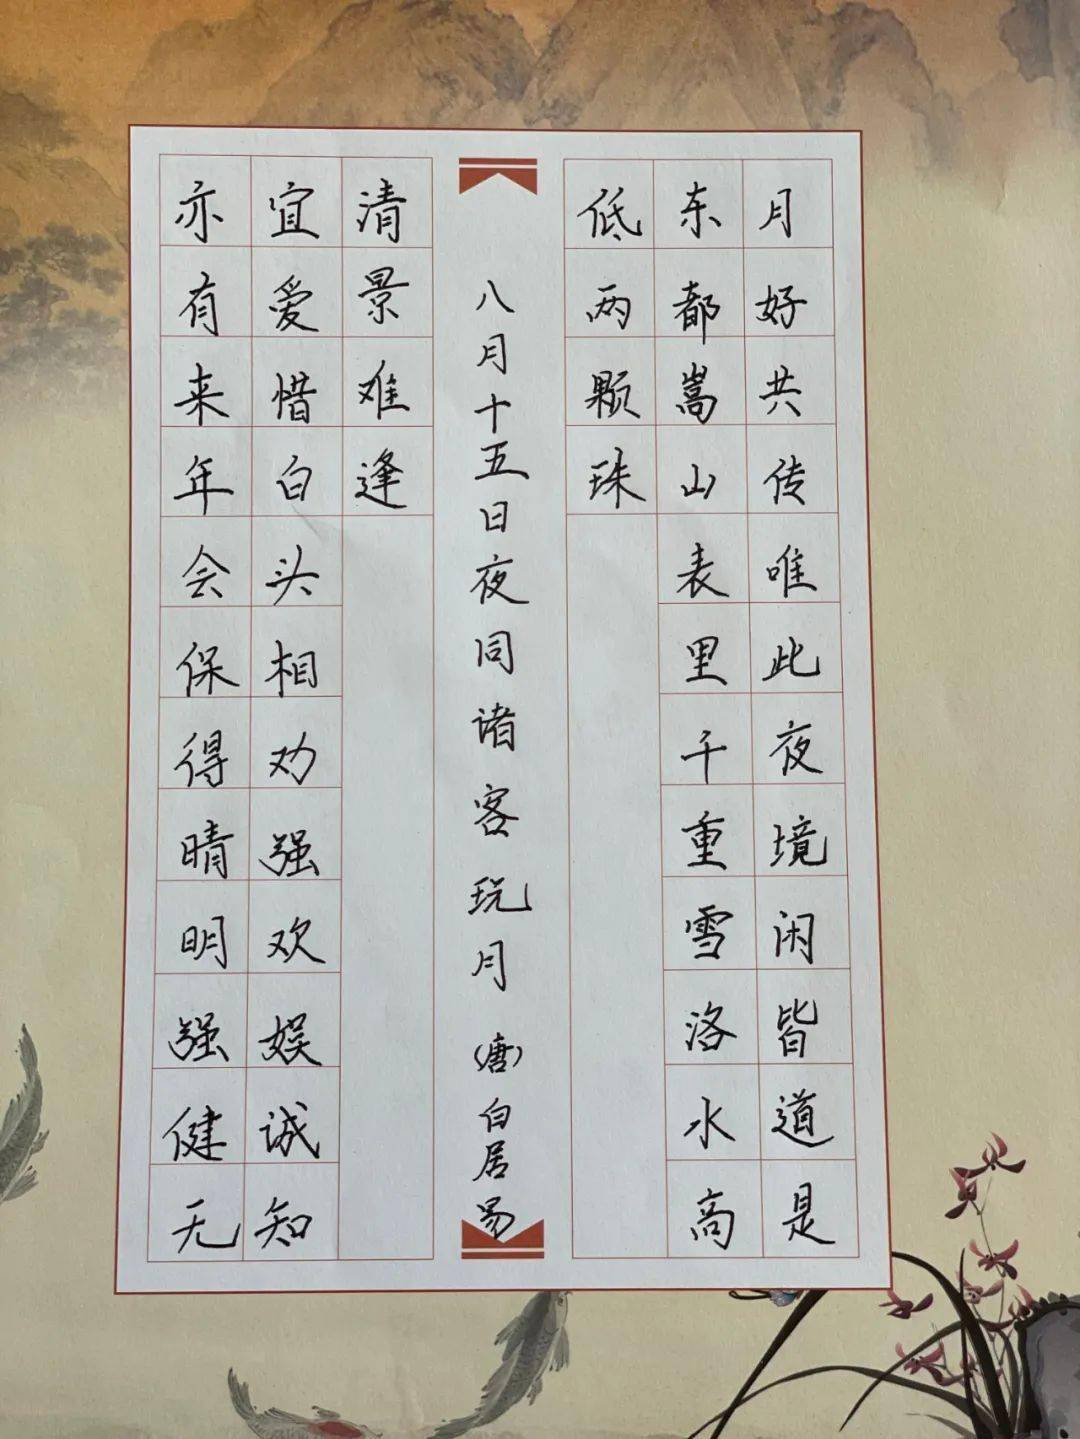 月好共传唯此夜境闲皆道是
东都嵩山表里千重雪洛水高
低两颗珠
八月十五日夜同诸客玩月（唐）白居易
清景难逢
宜爱惜白头相劝强欢娱诚知
亦有来年会保得晴明强健无